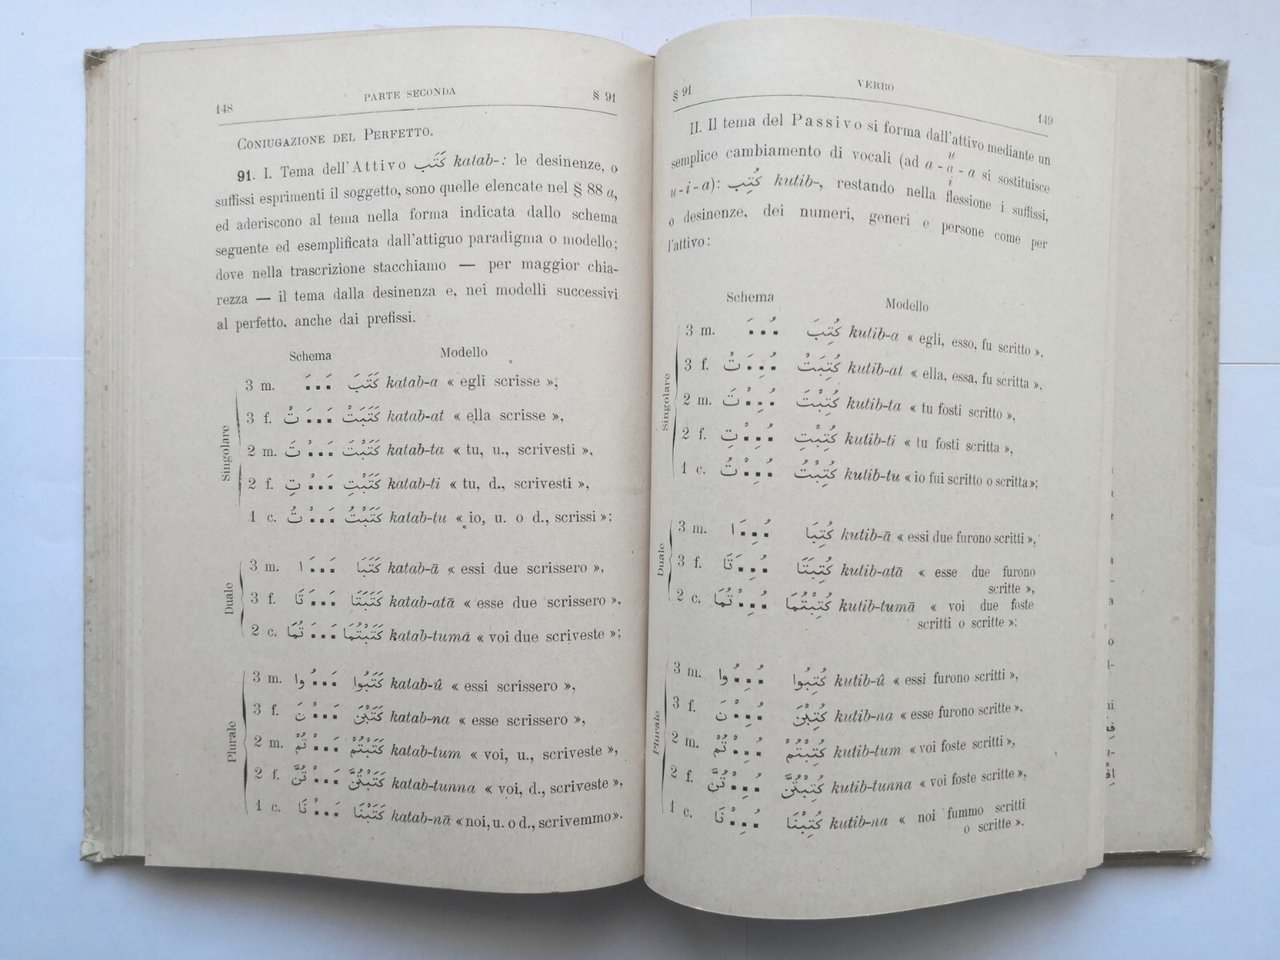 148 PARTE SECONDA § 91
CONIUGAZIONE DEL PERFETTO.
91. I. Tema dell'Attivo كَتَب katab-: le desinenze, o
suffissi esprimenti il soggetto, sono quelle elencate nel § 88 a,
ed aderiscono al tema nella forma indicata dallo schema
seguente ed esemplificata dall'attiguo paradigma o modello;
dove nella trascrizione stacchiamo — per maggior chia-
rezza — il tema dalla desinenza e, nei modelli successivi
al perfetto, anche dai prefissi.
Schema Modello
Singolare
3 m. كَتَبَ katab-a « egli scrisse »;
3 f. كَتَبَتْ katab-at « ella scrisse »,
2 m. كَتَبْتَ katab-ta « tu, u., scrivesti »,
2 f. كَتَبْتِ katab-ti « tu, d., scrivesti »,
1 c. كَتَبْتُ katab-tu « io, u. o d., scrissi »:
Duale
3 m. كَتَبَا katab-ā « essi due scrissero »,
3 f. كَتَبَتَا katab-atā « esse due scrissero »,
2 c. كَتَبْتُمَا katab-tumā « voi due scriveste »;
Plurale
3 m. كَتَبُوا katab-û « essi scrissero »,
3 f. كَتَبْنَ katab-na « esse scrissero »,
2 m. كَتَبْتُمْ katab-tum « voi, u., scriveste »,
2 f. كَتَبْتُنَّ katab-tunna « voi, d., scriveste »,
1 c. كَتَبْنَا katab-nā « noi, u. o d., scrivemmo ».
§ 91 VERBO 149
II. Il tema del Passivo si forma dall'attivo mediante un
semplice cambiamento di vocali (ad a - a - a si sostituisce
u - i - a): كُتِب kutib-, restando nella flessione i suffissi,
o desinenze, dei numeri, generi e persone come per
l'attivo:
Schema Modello
Singolare
3 m. كُتِبَ kutib-a « egli, esso, fu scritto ».
3 f. كُتِبَتْ kutib-at « ella, essa, fu scritta ».
2 m. كُتِبْتَ kutib-ta « tu fosti scritto »,
2 f. كُتِبْتِ kutib-ti « tu fosti scritta »,
1 c. كُتِبْتُ kutib-tu « io fui scritto o scritta»;
Duale
3 m. كُتِبَا kutib-ā « essi due furono scritti »,
3 f. كُتِبَتَا kutib-atā « esse due furono
scritte »,
2 c. كُتِبْتُمَا kutib-tumā « voi due foste
scritti o scritte »:
Plurale
3 m. كُتِبُوا kutib-û « essi furono scritti »,
3 f. كُتِبْنَ kutib-na « esse furono scritte ».
2 m. كُتِبْتُمْ kutib-tum « voi foste scritti »,
2 f. كُتِبْتُنَّ kutib-tunna « voi foste scritte »,
1 c. كُتِبْنَا kutib-na « noi fummo scritti
o scritte ».